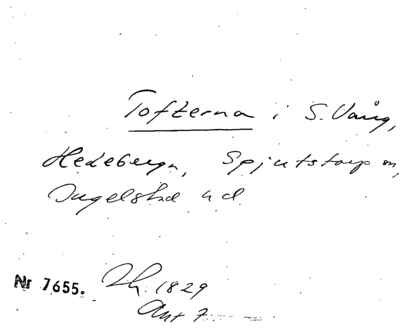 Tofterna i S. Vång,
Hedeberga, Spjutstorp m,
Ingelstad hd
Nr 7655. 1829
Ant 7